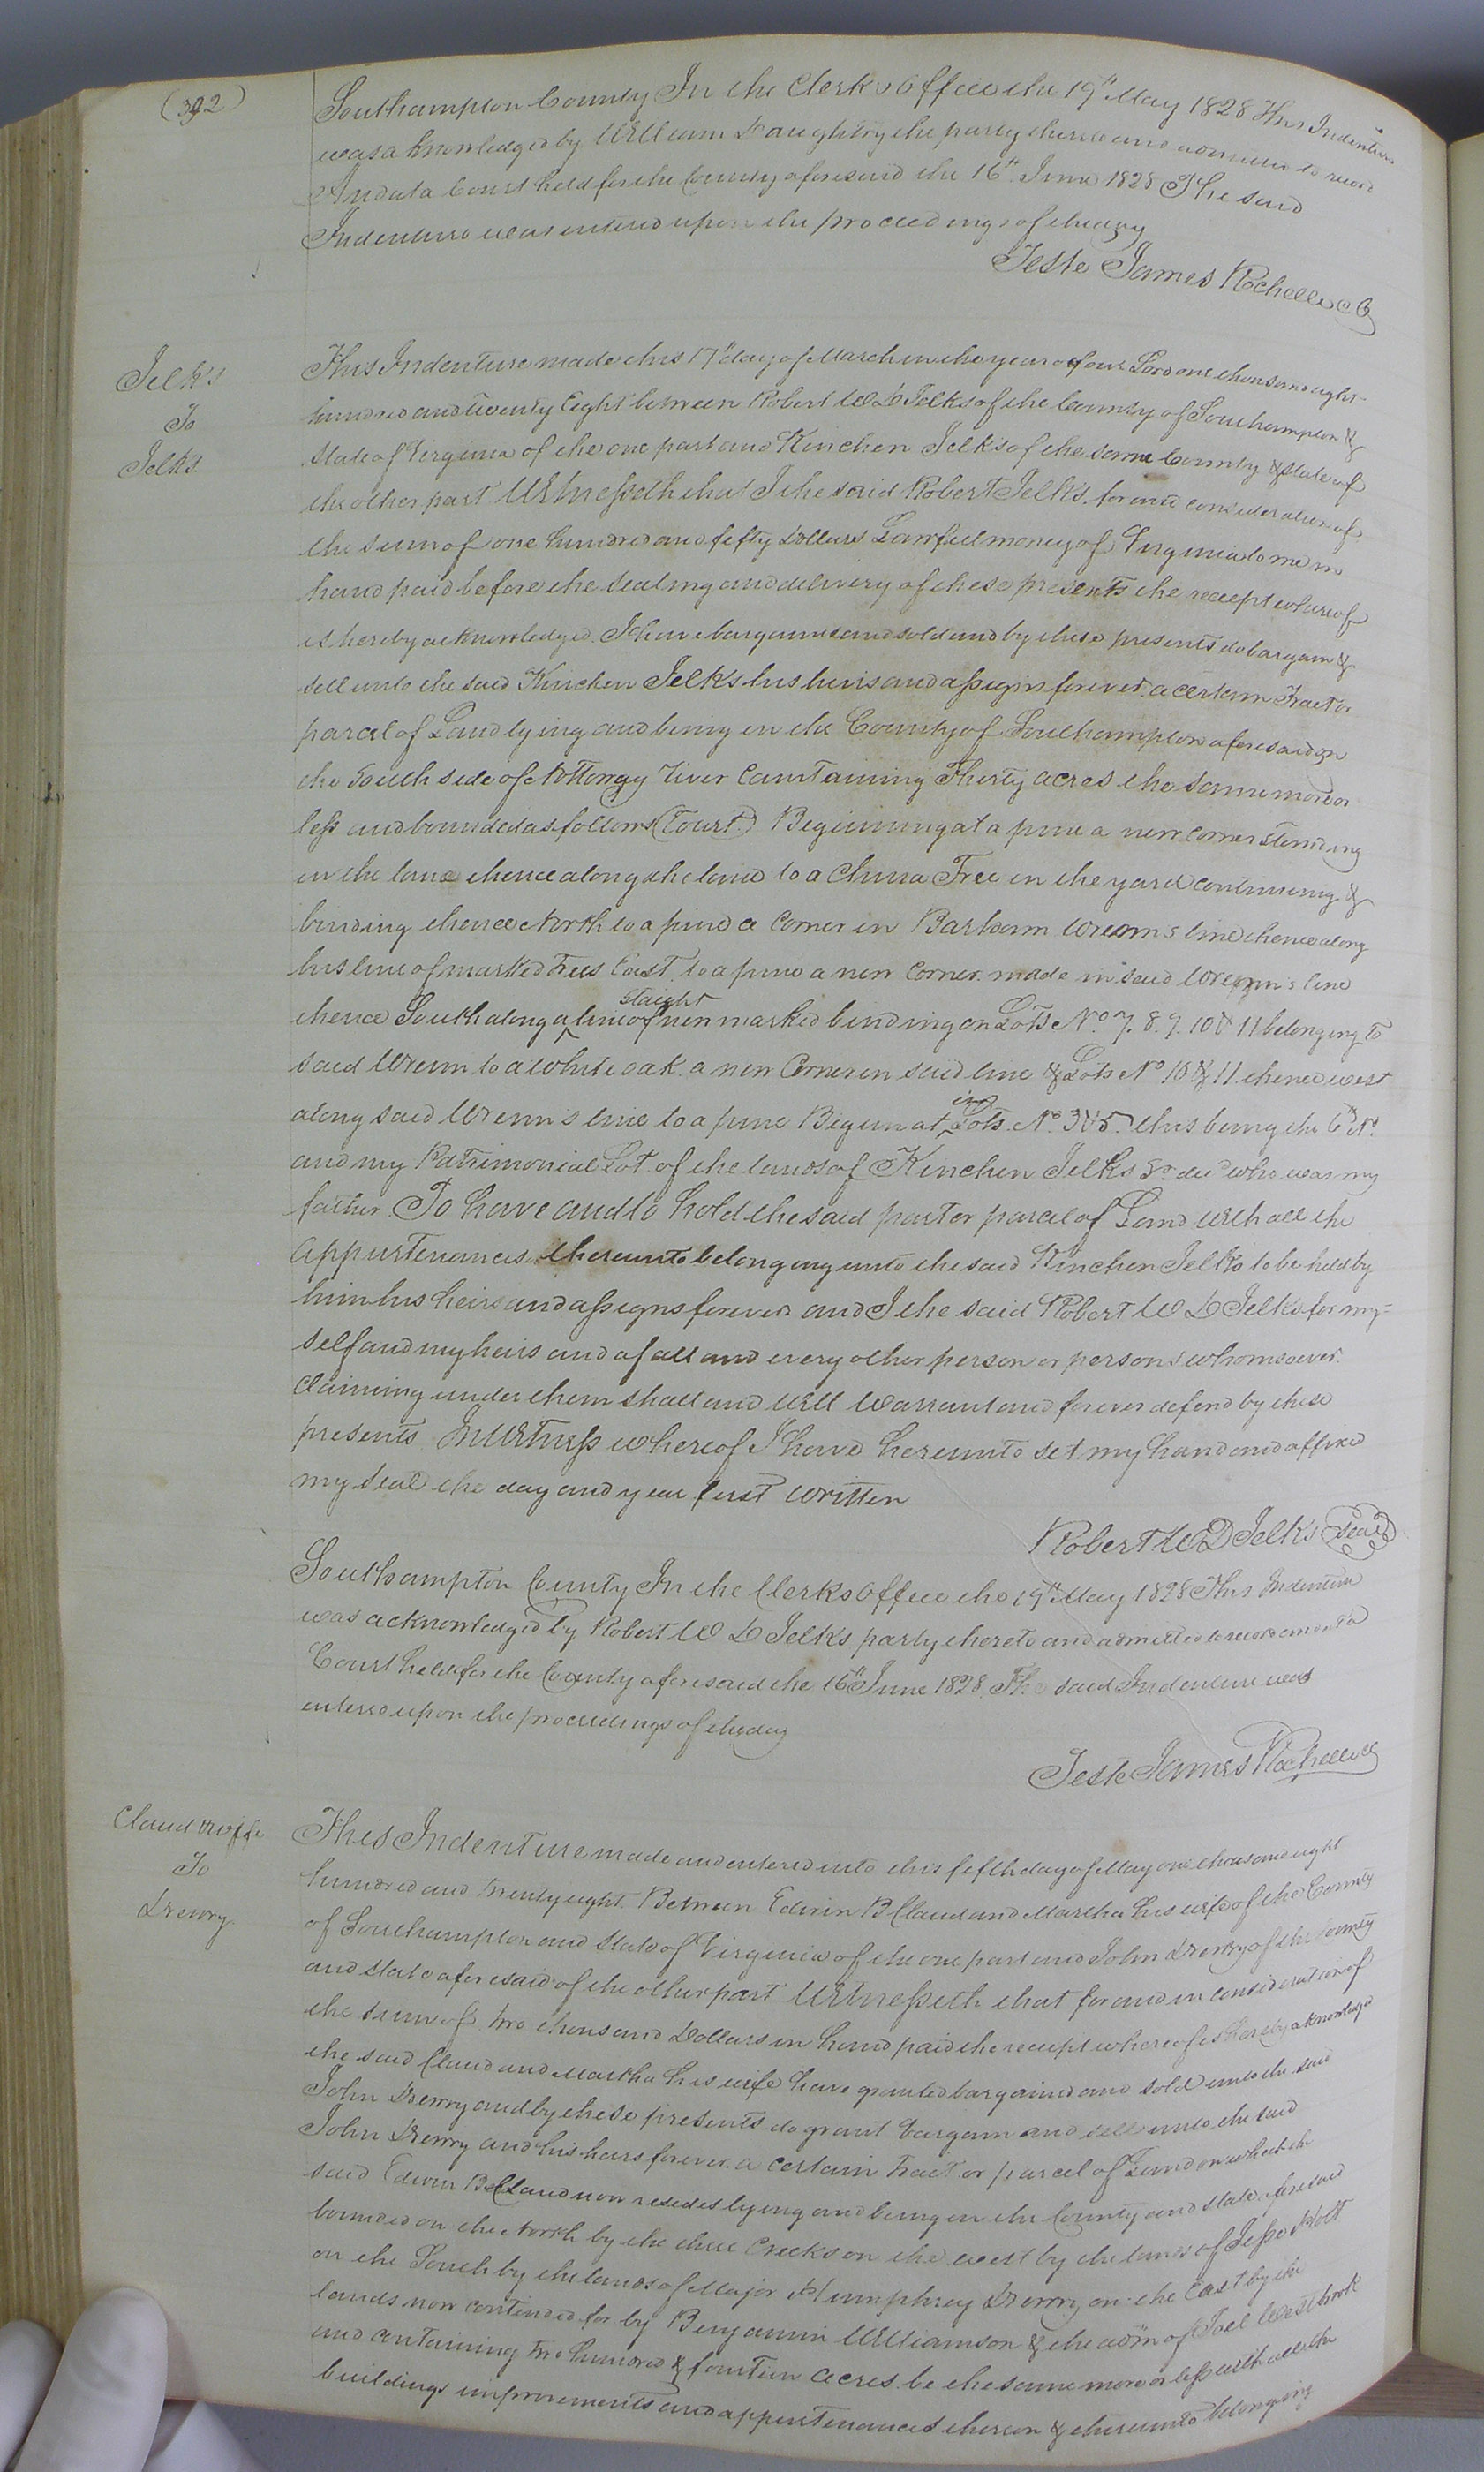 (392)
Southampton County In the Clerks Office the 19th May 1828 This Indenture
was acknowledged by William Daughtry the party thereto and admitted to record
And at a Court held for the County aforesaid the 16th June 1828 The said
Indenture was entered upon the proceedings of the day
Teste James Rochelle CC
Jelks
To
Jelks
This Indenture made this 17th day of March in the year of our Lord one thousand eight
hundred and twenty Eight between Robert W D Jelks of the County of Southampton &
State of Virginia of the one part and Kinchen Jelks of the same County & State of
the other part Witnesseth that I the said Robert Jelks for and consideration of
the sum of one hundred and fifty Dollars Lawful money of Virginia to me in
hand paid before the sealing and delivery of these presents the receipt whereof
is hereby acknowledged I have bargained and sold and by these presents do bargain &
sell unto the said Kinchen Jelks his heirs and assigns forever a certain Tract or
parcel of Land lying and being in the County of Southampton aforesaid on
the South side of Nottoway river Containing Thirty acres the same more or
less and bounded as follows Beginning at a pine a new corner standing
in the lane thence along the land to a China Tree in the yard continuing &
binding thence North to a pine a Corner in Barham Wrenns line thence along
his line of marked Trees East to a pine a new Corner made in said Wrenn's line
thence South along a straight line of new marked binding on Lots No 7. 8. 9. 10 & 11 belonging to
said Wrenn to a white oak a new Corner in said line & Lots No 10 & 11 thence west
along said Wrenn's line to a pine Begun at in Lots No 3 & 5 this being the 6th No
and my Patrimonial Lot of the lands of Kinchen Jelks Sr decd who was my
father To have and to hold the said part or parcel of Land with all the
appurtenances thereunto belonging unto the said Kinchen Jelks to be held by
him his heirs and assigns forever and I the said Robert W D Jelks for my-
self and my heirs and of all and every other person or persons whomsoever
Claiming under them shall and will Warrant and forever defend by these
presents In Witness whereof I have hereunto set my hand and affixed
my seal the day and year first written
Robert W D Jelks Seal
Southampton County In the Clerks Office the 19th May 1828 This Indenture
was acknowledged by Robert W D Jelks party thereto and admitted to record and at a
Court held for the County aforesaid the 16th June 1828 The said Indenture was
entered upon the proceedings of the day
Teste James Rochelle CC
Claud & wife
To
Drewry
This Indenture made and entered into this fifth day of May one thousand eight
hundred and twenty eight Between Edwin B Claud and Martha his wife of the County
of Southampton and State of Virginia of the one part and John Drewry of the County
and State aforesaid of the other part Witnesseth that for and in consideration of
the sum of two thousand Dollars in hand paid the receipt whereof is hereby aknowledged
the said Claud and Martha his wife have granted bargained and sold unto the said
John Drewry and by these presents do grant bargain and sell unto the said
John Drewry and his heirs forever a certain Tract or parcel of Land on which the
said Edwin B Claud now resides lying and being in the County and State aforesaid
bounded on the North by the three Creeks on the west by the lands of Jesse Holt
on the South by the lands of Major Humphrey Drewry on the East by the
lands now contended for by Benjamin Williamson & the adm of Joel Westbrook
and containing two hundred & fourteen acres be the same more or less with all the
buildings improvements and appurtenances thereon & thereunto belonging